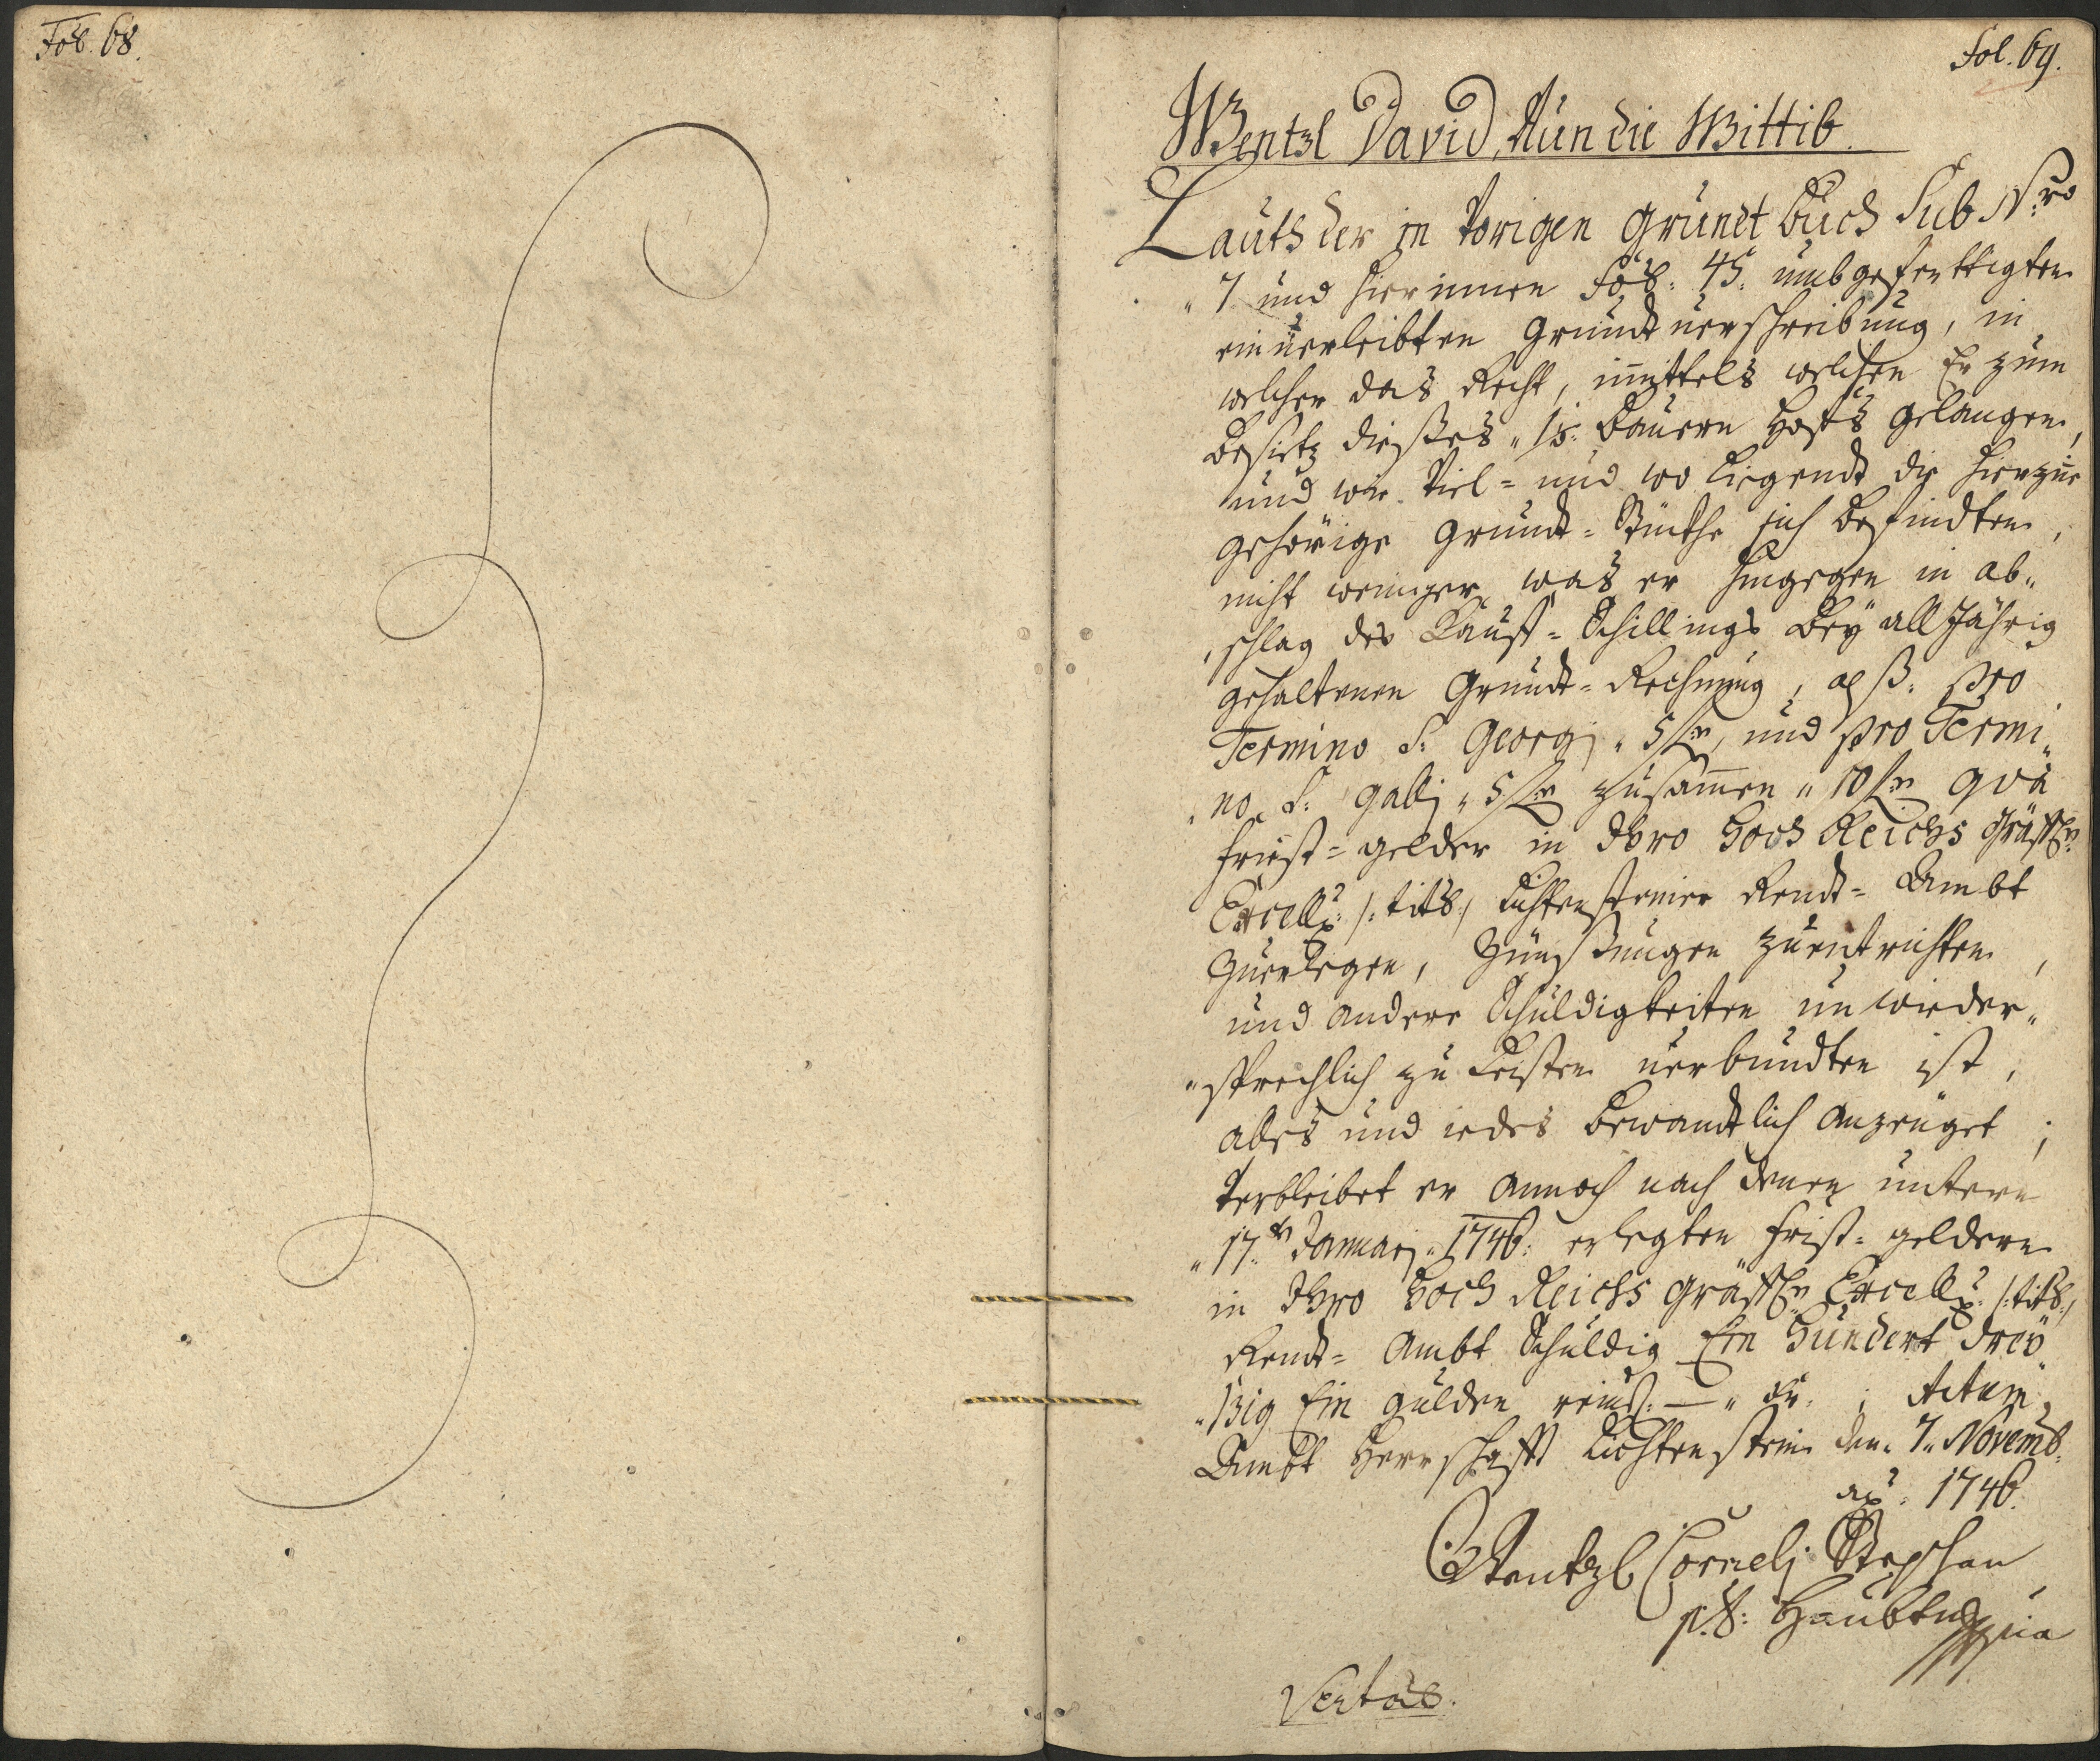 Fol. 68.
Fol. 69.
Wentzl David, Nun die Wittib.
Lauth der in Vorigen Grundt Buch Sub N:ro
„ 7 und hierinnen Fol: 45: umbgeferttigten
einverleibten Grundtverschreibung, in
welcher das Recht, mittels welchen Er zum
Besietz dießes „ Bauern Hofs gelangen,
und wie Viel= und wo Liegendt die hierzue
gehörige Grundt=Stückhe sich befindten,
nicht weniger was er hingegen in ab„
„schlag des Kauff=Schillings Bey all Jährig
gehaltenen Grundt=Rechnung, alß: pro
Termino S: Georgj „ 5 und pro Termi„
„no S: Gallj „ 5 zusammen „ 10 qvà
Friest=gelder in Ihro Hoch Reichs Gräffl:
Excell: /: titl: / Lichtensteiner Rendt=Ambt
zuerlegen, Zünßungen zuentrichten,
und andere Schuldigkeiten unwieder„
„sprechlich zu Leisten verbundten ist,
alles und iedes bewandtlich anzeiget;
Verbleibet er annoch nach denen untern
„ 17.t Januarj „ 1746: erlegten Frist=geldern
in Ihro Hoch Reichs Gräffl: Excell: /: titl: /
Rendt=Ambt Schuldig Ein Hundert drey
„ßig Ein gulden reinis: — „ Kr: ; Actum
Ambt Herrschafft Lichtenstein den „ 7„ Novemb:
ao: 1746.
Wentzl Cornelj Stephan
p.t: Haubtm mpria
Vertas.